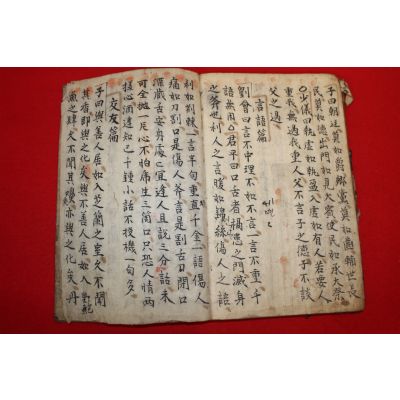 子曰朝廷莫如爵鄕黨莫如齒輔世長
民莫如德出門如見大賓使民如承大祭
○少儀曰執虛如執盈入虛如有人若要人
重我無過我重人父不言子之德子不談
父之過
言語篇
劉會曰言不中理不如不言一言千
語無用○君平曰口舌者禍患之門滅身
之斧也利人之言煖如綿絲傷人之語
利如荊棘一言半句重直千金一語傷人
痛如刀割口是傷人斧言是割舌刀閉口
深藏舌安身處處宜逢人且說三分話未
可全抛一片心不怕虎生三箇口只恐人情兩
樣心酒逢知己千鍾小話不投機一句多
交友篇
子曰與善人居如入芝蘭之室久不聞
其香卽與之化矣與不善人居如入鮑
魚之肆久不聞其臭亦與之化矣丹